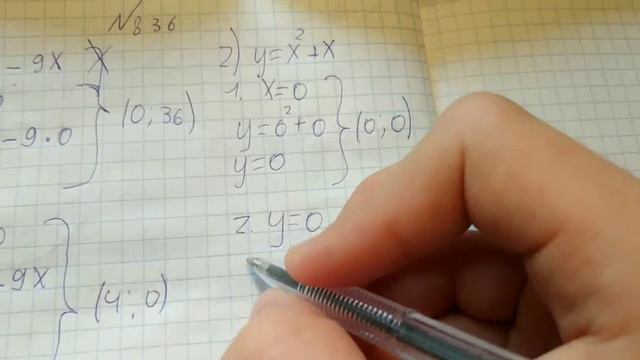 №836
- 9x
- 9·0
(0; 36)
- 9x
(4; 0)
2) y=x²+x
1. x=0
y=0²+0
y=0
(0; 0)
2. y=0